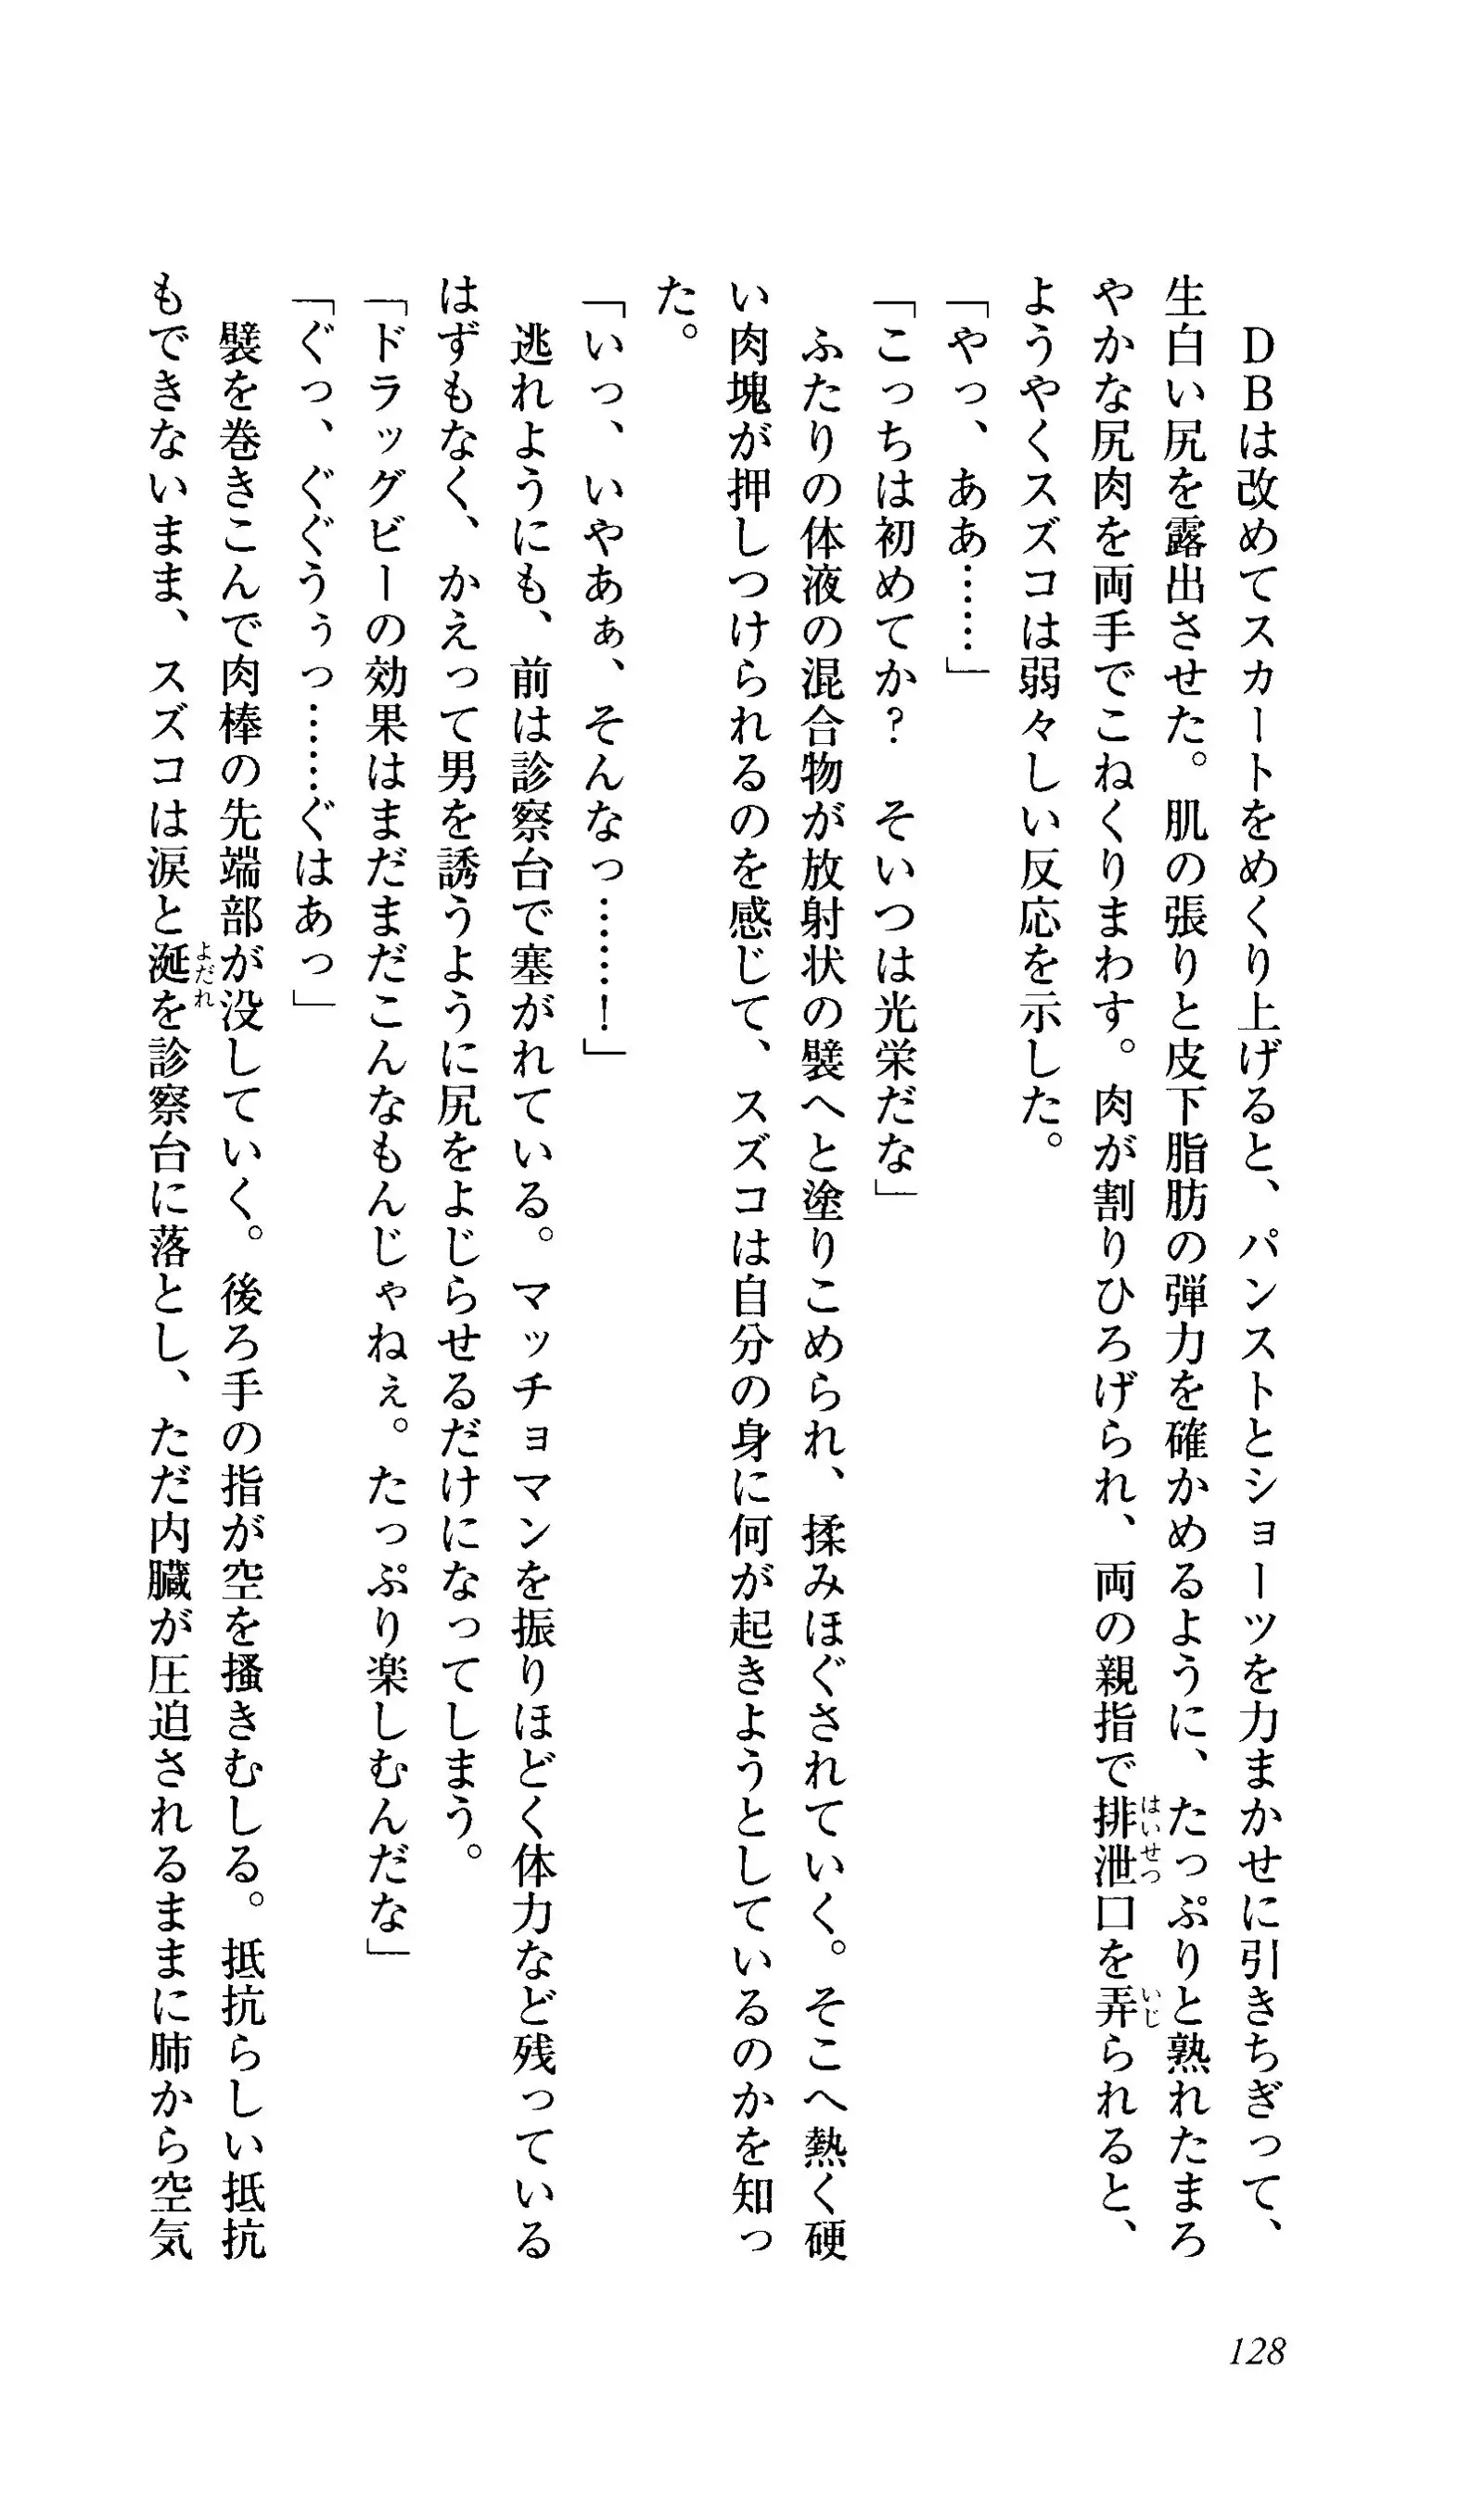 DBは改めてスカートをめくり上げると、パンストとショーツを力まかせに引きちぎって、
生白い尻を露出させた。肌の張りと皮下脂肪の弾力を確かめるように、たっぷりと熟れたまろ
やかな尻肉を両手でこねくりまわす。肉が割りひろげられ、両の親指で排泄口を弄られると、
ようやくスズコは弱々しい反応を示した。
「やっ、ああ……」
「こっちは初めてか？　そいつは光栄だな」
　ふたりの体液の混合物が放射状の襞へと塗りこめられ、揉みほぐされていく。そこへ熱く硬
い肉塊が押しつけられるのを感じて、スズコは自分の身に何が起きようとしているのかを知っ
た。
「いっ、いやあぁ、そんなっ……！」
　逃れようにも、前は診察台で塞がれている。マッチョマンを振りほどく体力など残っている
はずもなく、かえって男を誘うように尻をよじらせるだけになってしまう。
「ドラッグビーの効果はまだまだこんなもんじゃねぇ。たっぷり楽しむんだな」
「ぐっ、ぐぐうぅっ……ぐはあっ」
　襞を巻きこんで肉棒の先端部が没していく。後ろ手の指が空を掻きむしる。抵抗らしい抵抗
もできないまま、スズコは涙と涎を診察台に落とし、ただ内臓が圧迫されるままに肺から空気
128